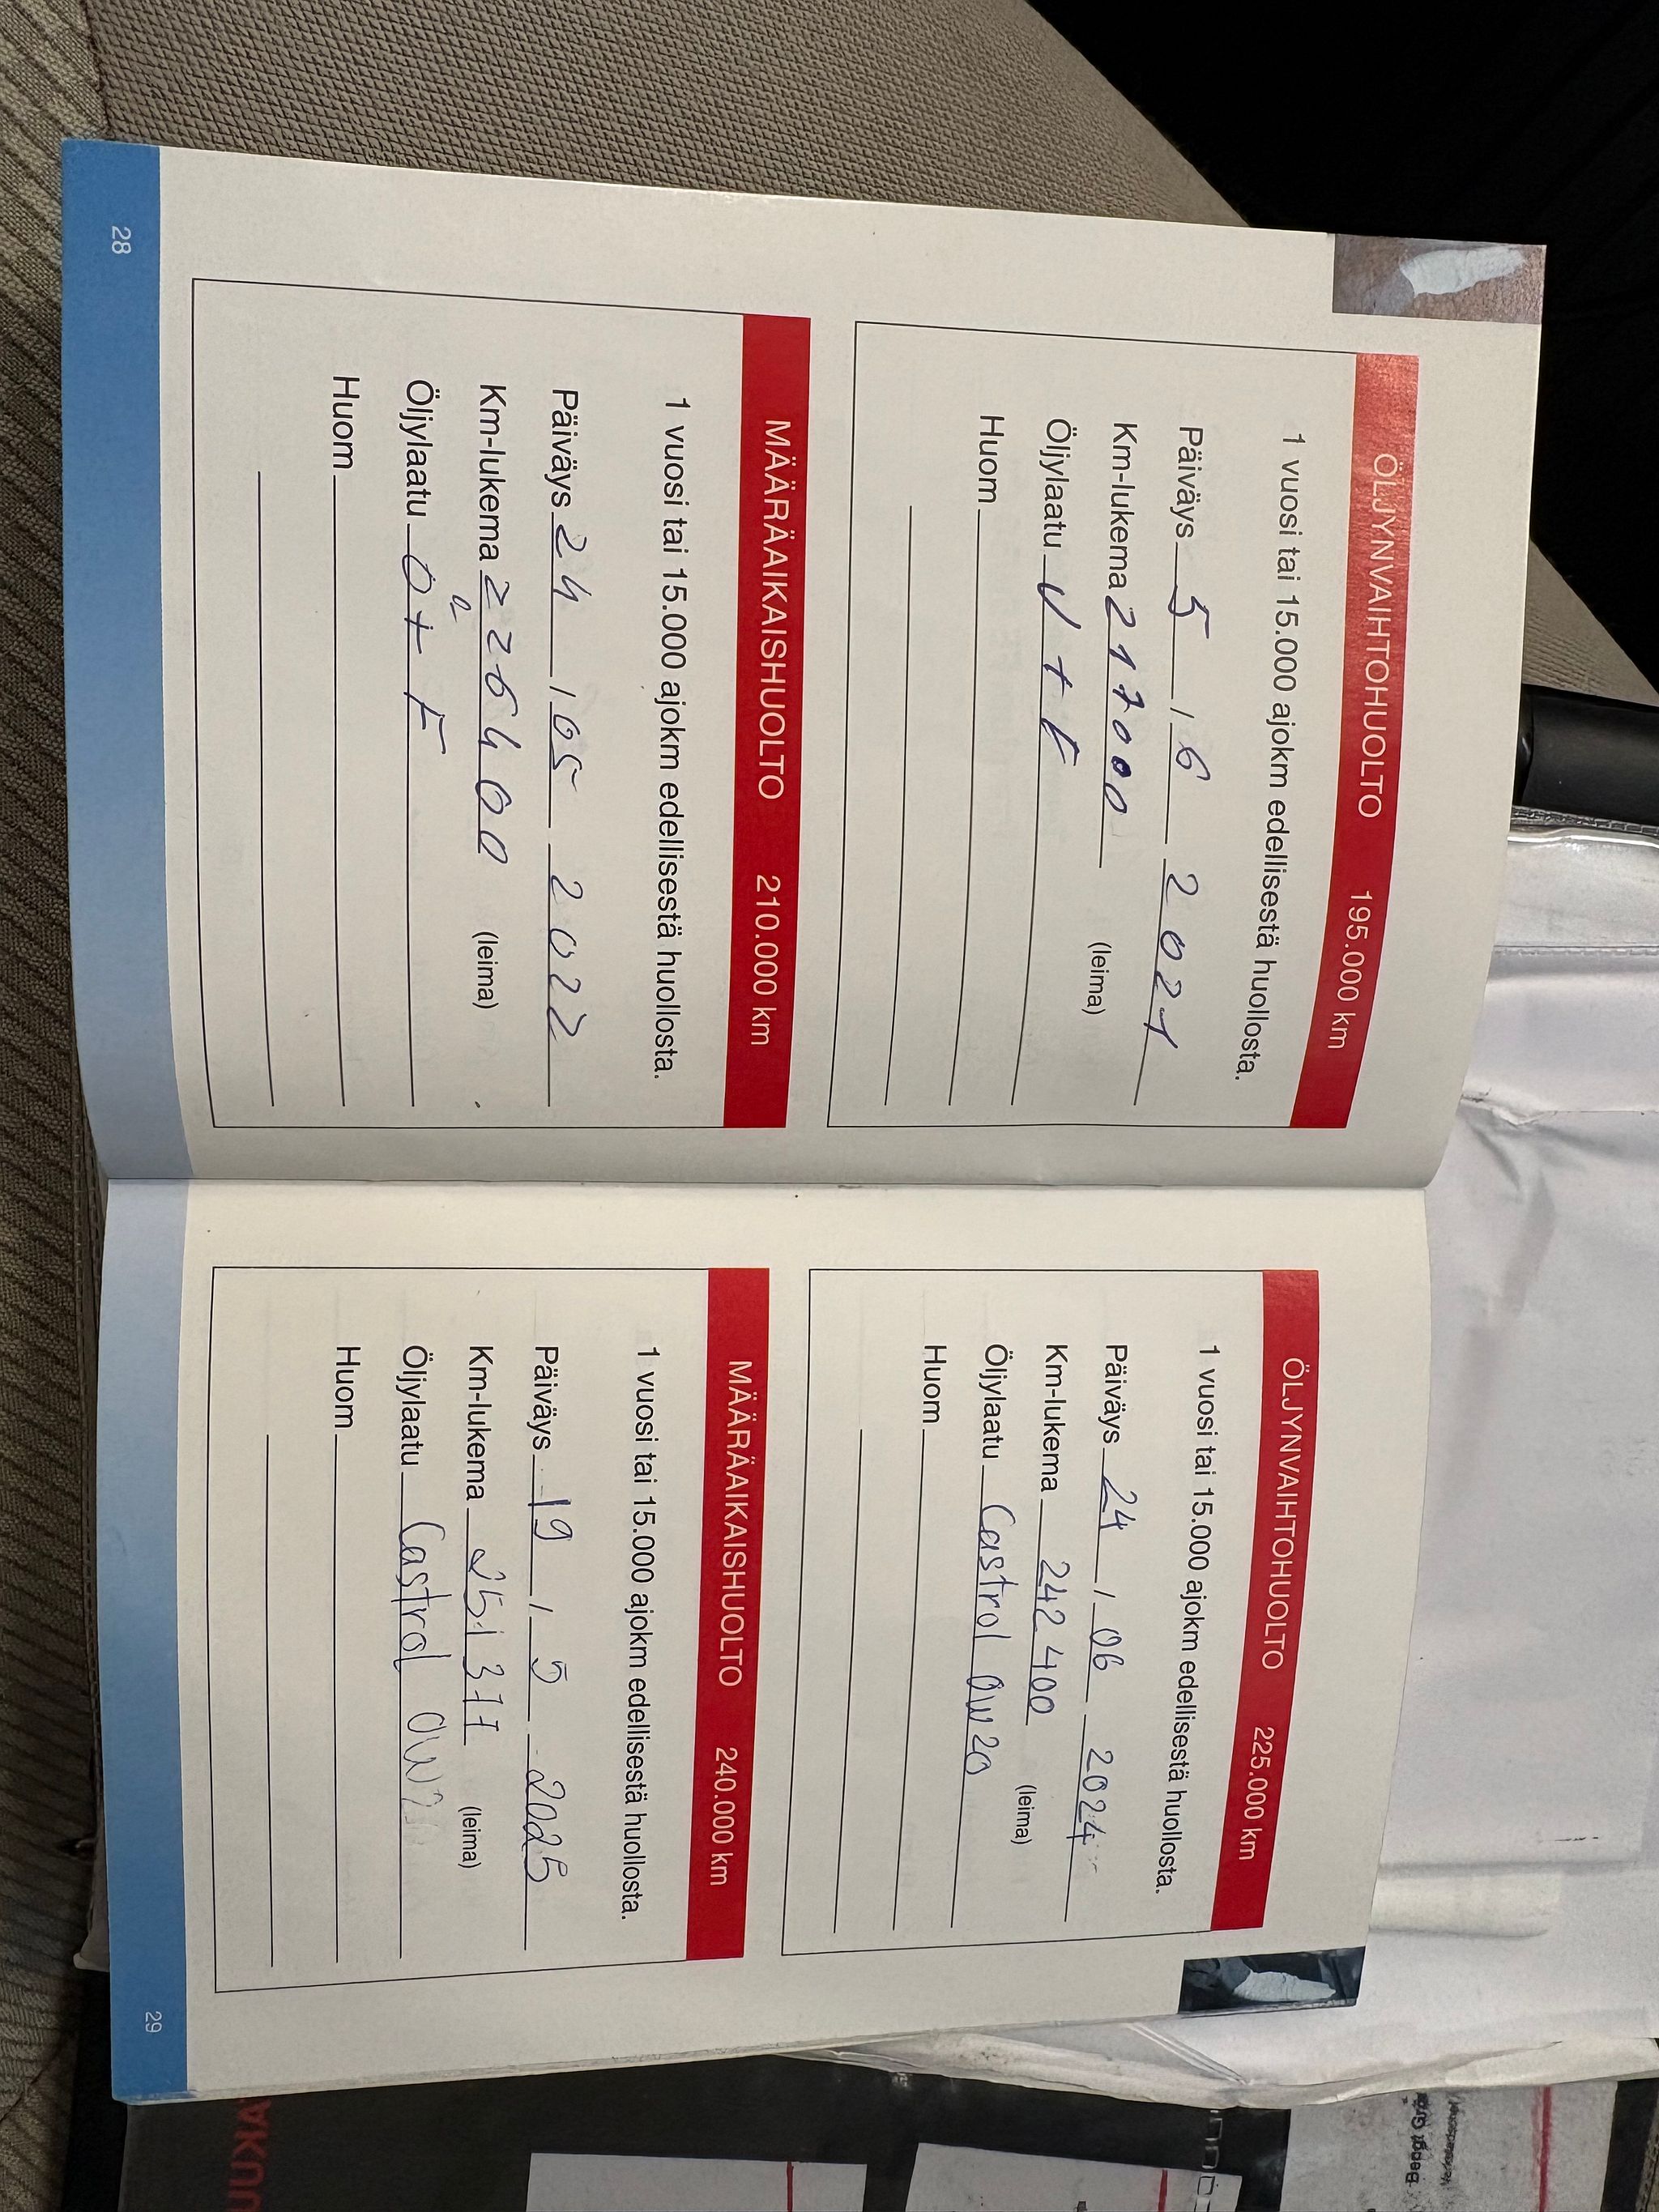 ÖLJYNVAIHTOHUOLTO 195.000 km
1 vuosi tai 15.000 ajokm edellisestä huollosta.
Päiväys 5 / 6 2021
Km-lukema 217000 (leima)
Öljylaatu
Huom
MÄÄRÄAIKAISHUOLTO 210.000 km
1 vuosi tai 15.000 ajokm edellisestä huollosta.
Päiväys 24 / 05 2022
Km-lukema 226400 (leima)
Öljylaatu Ö + F
Huom
28
ÖLJYNVAIHTOHUOLTO 225.000 km
1 vuosi tai 15.000 ajokm edellisestä huollosta.
Päiväys 24 / 06 2024
Km-lukema 242 400 (leima)
Öljylaatu Castrol 0W20
Huom
MÄÄRÄAIKAISHUOLTO 240.000 km
1 vuosi tai 15.000 ajokm edellisestä huollosta.
Päiväys 19 / 5 2025
Km-lukema 251377 (leima)
Öljylaatu Castrol 0W20
Huom
29